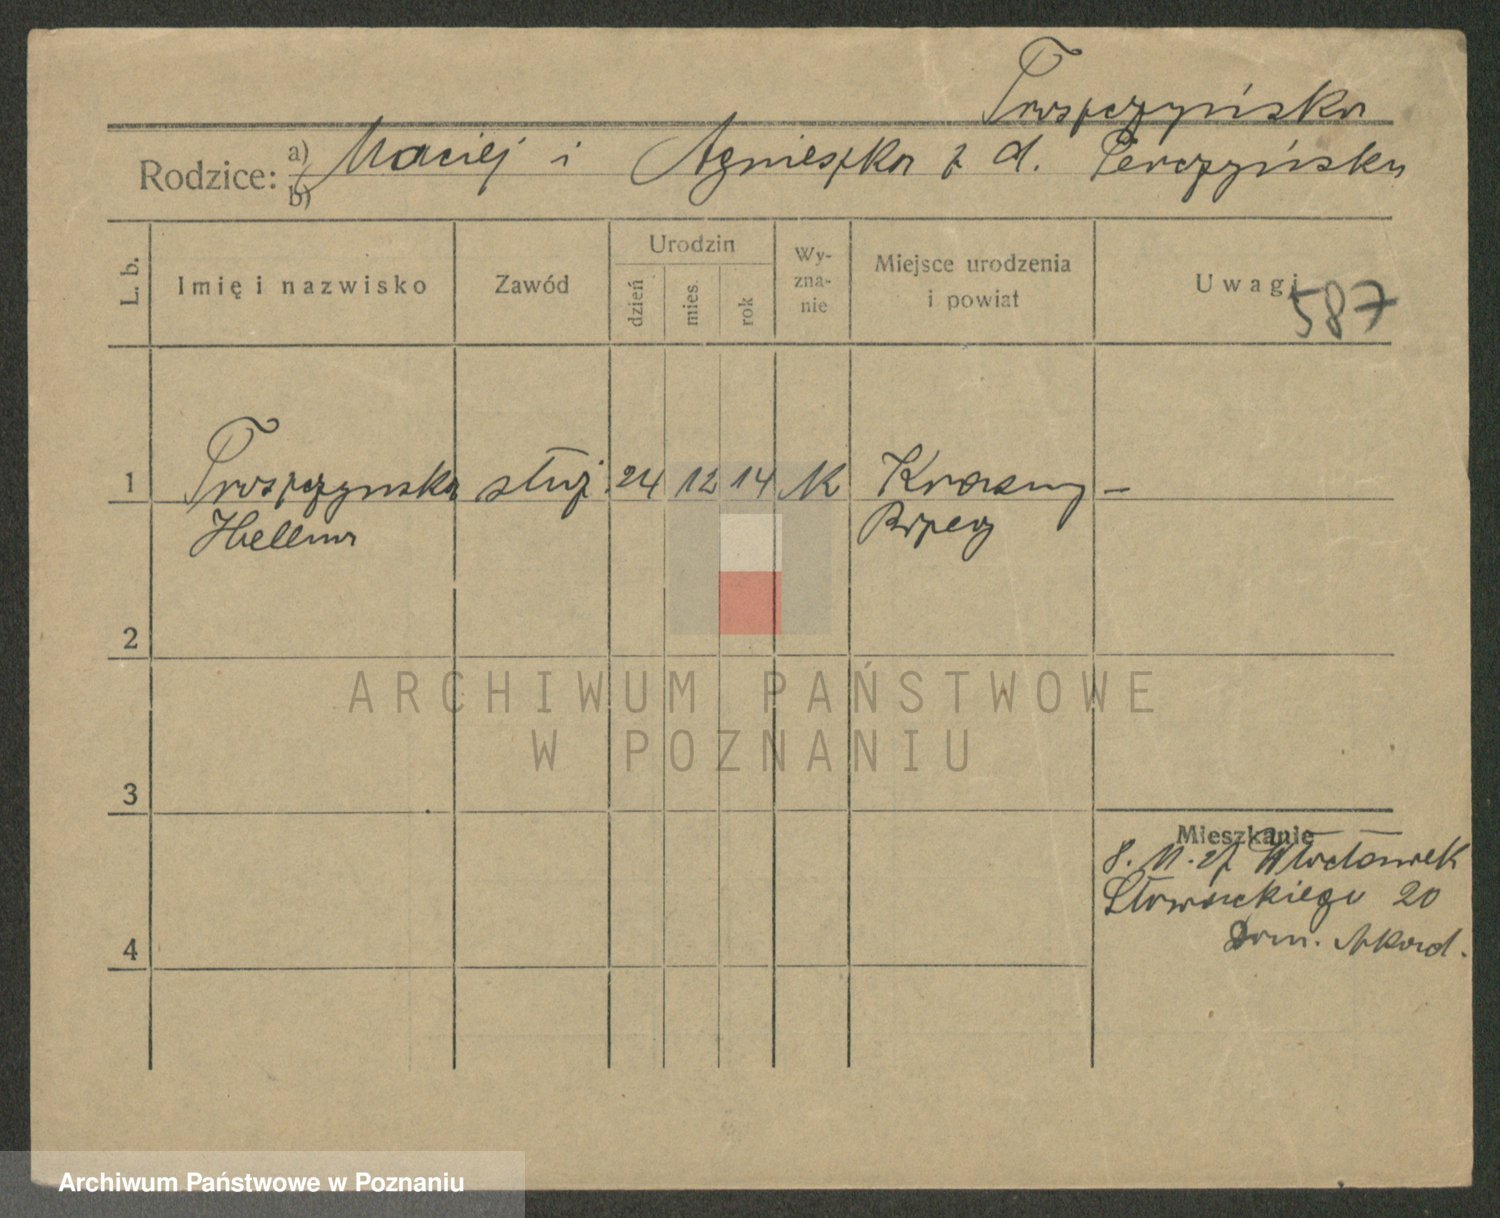 Troszczyńska
Rodzice: a) Maciej i Agnieszka z d. Pierczyńska
b)
L. b.
Imię i nazwisko
Zawód
Urodzin
dzień
mies.
rok
Wy-
zna-
nie
Miejsce urodzenia
i powiat
Uwagi
587
1 Troszczynska służ. 24 12 14 K Krasny –
Hellena
2
3
4
Mieszkanie
Włocławek
Słowackiego 20
Dom. Akord.
ARCHIWUM PAŃSTWOWE
W POZNANIU
Archiwum Państwowe w Poznaniu